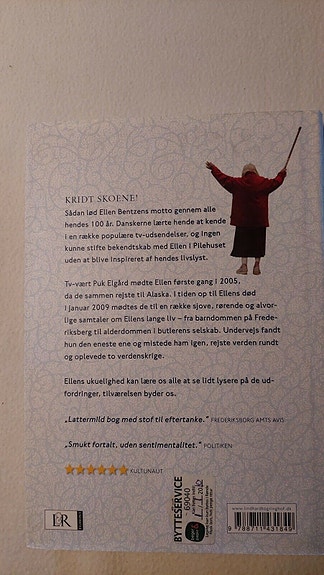 KRIDT SKOENE!
Sådan lød Ellen Bentzens motto gennem alle
hendes 100 år. Danskerne lærte hende at kende
i en række populære tv-udsendelser, og ingen
kunne stifte bekendtskab med Ellen i Pilehuset
uden at blive inspireret af hendes livslyst.
Tv-vært Puk Elgård mødte Ellen første gang i 2005,
da de sammen rejste til Alaska. I tiden op til Ellens død
i januar 2009 mødtes de til en række sjove, rørende og alvor-
lige samtaler om Ellens lange liv – fra barndommen på Frede-
riksberg til alderdommen i butlerens selskab. Undervejs fandt
hun den eneste ene og mistede ham igen, rejste verden rundt
og oplevede to verdenskrige.
Ellens ukuelighed kan lære os alle at se lidt lysere på de ud-
fordringer, tilværelsen byder os.
„Lattermild bog med stof til eftertanke.” FREDERIKSBORG AMTS AVIS
„Smukt fortalt, uden sentimentalitet.” POLITIKEN
KULTUNAUT
L&R
BYTTESERVICE
- 69040
www.lindhardtogringhof.dk
9 788711 431849